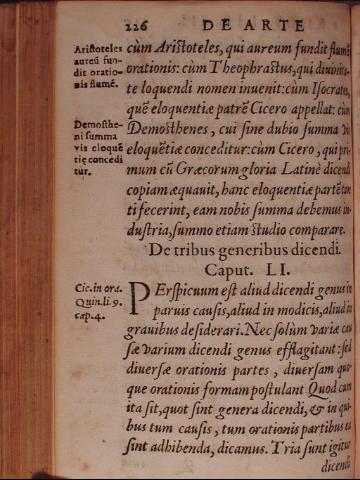 226 DE ARTE
Aristoteles
aureū fun-
dit oratio-
nis flumē.
cùm Aristoteles, qui aureum fundit flumē
orationis: cùm Theophrastus, qui diuinita-
te loquendi nomen inuenit: cùm Isocrates,
quē eloquentiæ patrē Cicero appellat: cùm
Demosthe-
ni summa
vis eloquē
tię concedi
tur.
Demosthenes, cui sine dubio summa vis
eloquētiæ conceditur: cùm Cicero, qui pri-
mum cū Græcorum gloria Latinè dicendi
copiam æquauit, hanc eloquentiæ partē tan
ti fecerint, eam nobis summa debemus in-
dustria, summo etiam studio comparare.
De tribus generibus dicendi.
Caput. LI.
Cic. in ora.
Quin. li. 9.
cap. 4.
PErspicuum est aliud dicendi genus in
paruis causis, aliud in modicis, aliud in
grauibus desiderari. Nec solùm variæ cau-
sæ varium dicendi genus efflagitant: sed
diuersæ orationis partes, diuersam quo-
que orationis formam postulant. Quod cum
ita sit, quot sint genera dicendi, & in qui-
bus tum causis, tum orationis partibus
sint adhibenda, dicamus. Tria sunt igitur
dicendi